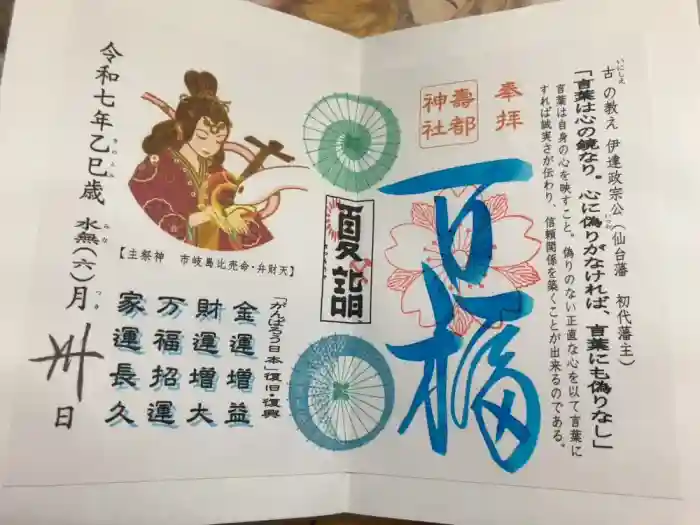 古の教え 伊達政宗公(仙台藩 初代藩主)
いにしえ
「言葉は心の鏡なり。心に偽りがなければ、言葉にも偽りなし」
いつわ
言葉は自身の心を映すこと。偽りのない正直な心を以て言葉に
すれば誠実さが伝わり、信頼関係を築くことが出来るのである。
奉拝
壽都
神社
夏詣
【主祭神 市岐島比売命・弁財天】
「がんばろう日本」復旧・復興
金運増益
財運増大
万福招運
家運長久
令和七年乙巳歳 水無(六)月
きのとみ
みな
づき
卅日